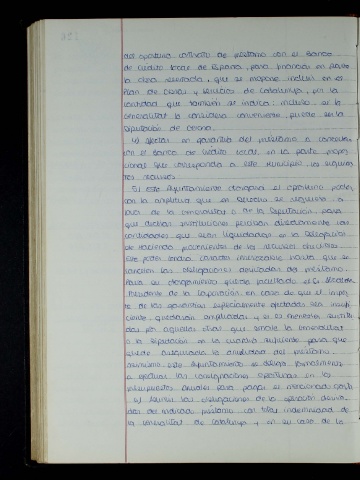 del oportuno contrato de préstamo con el Banco
de Crédito Local de España, para financiar en parte
la obra reseñada, que se propone incluir en el
Plan de Obras y Servicios de Catalunya, por la
cantidad que también se indica; incluso si la
Generalitat lo considera conveniente puede ser la
Diputación de Girona.
4) Afectar en garantía del préstamo a concertar
con el Banco de Crédito Local, en la parte propor-
cional que corresponda a este Municipio, los siguien-
tes recursos
5) Este Ayuntamiento otorgará el oportuno poder,
con la amplitud que en Derecho se requiera, a
favor de la Generalitat o de la Diputación, para
que dichas instituciones perciban directamente las
cantidades que sean liquidadas en la Delegación
de Hacienda provenientes de los recursos
Este poder tendrá carácter irrevocable hasta que se
cancelen las obligaciones derivadas del préstamo.
Para su otorgamiento queda facultado el Sr. Alcalde
Presidente de la Corporación. En caso de que el impor-
te de las garantías especialmente afectadas sea insufi-
ciente, quedarán ampliadas y si es menester sustitui-
das por aquellas otras que señale la Generalitat
o la Diputación en la cuantía suficiente para que
quede asegurada la anualidad del préstamo.
Asimismo este Ayuntamiento se obliga formalmente
a efectuar las consignaciones oportunas en los
presupuestos anuales para pagar el mencionado
6) Asumir las obligaciones de la operación deriva-
das del indicado préstamo con total indemnidad de
la Generalitat de Catalunya y en su caso de la